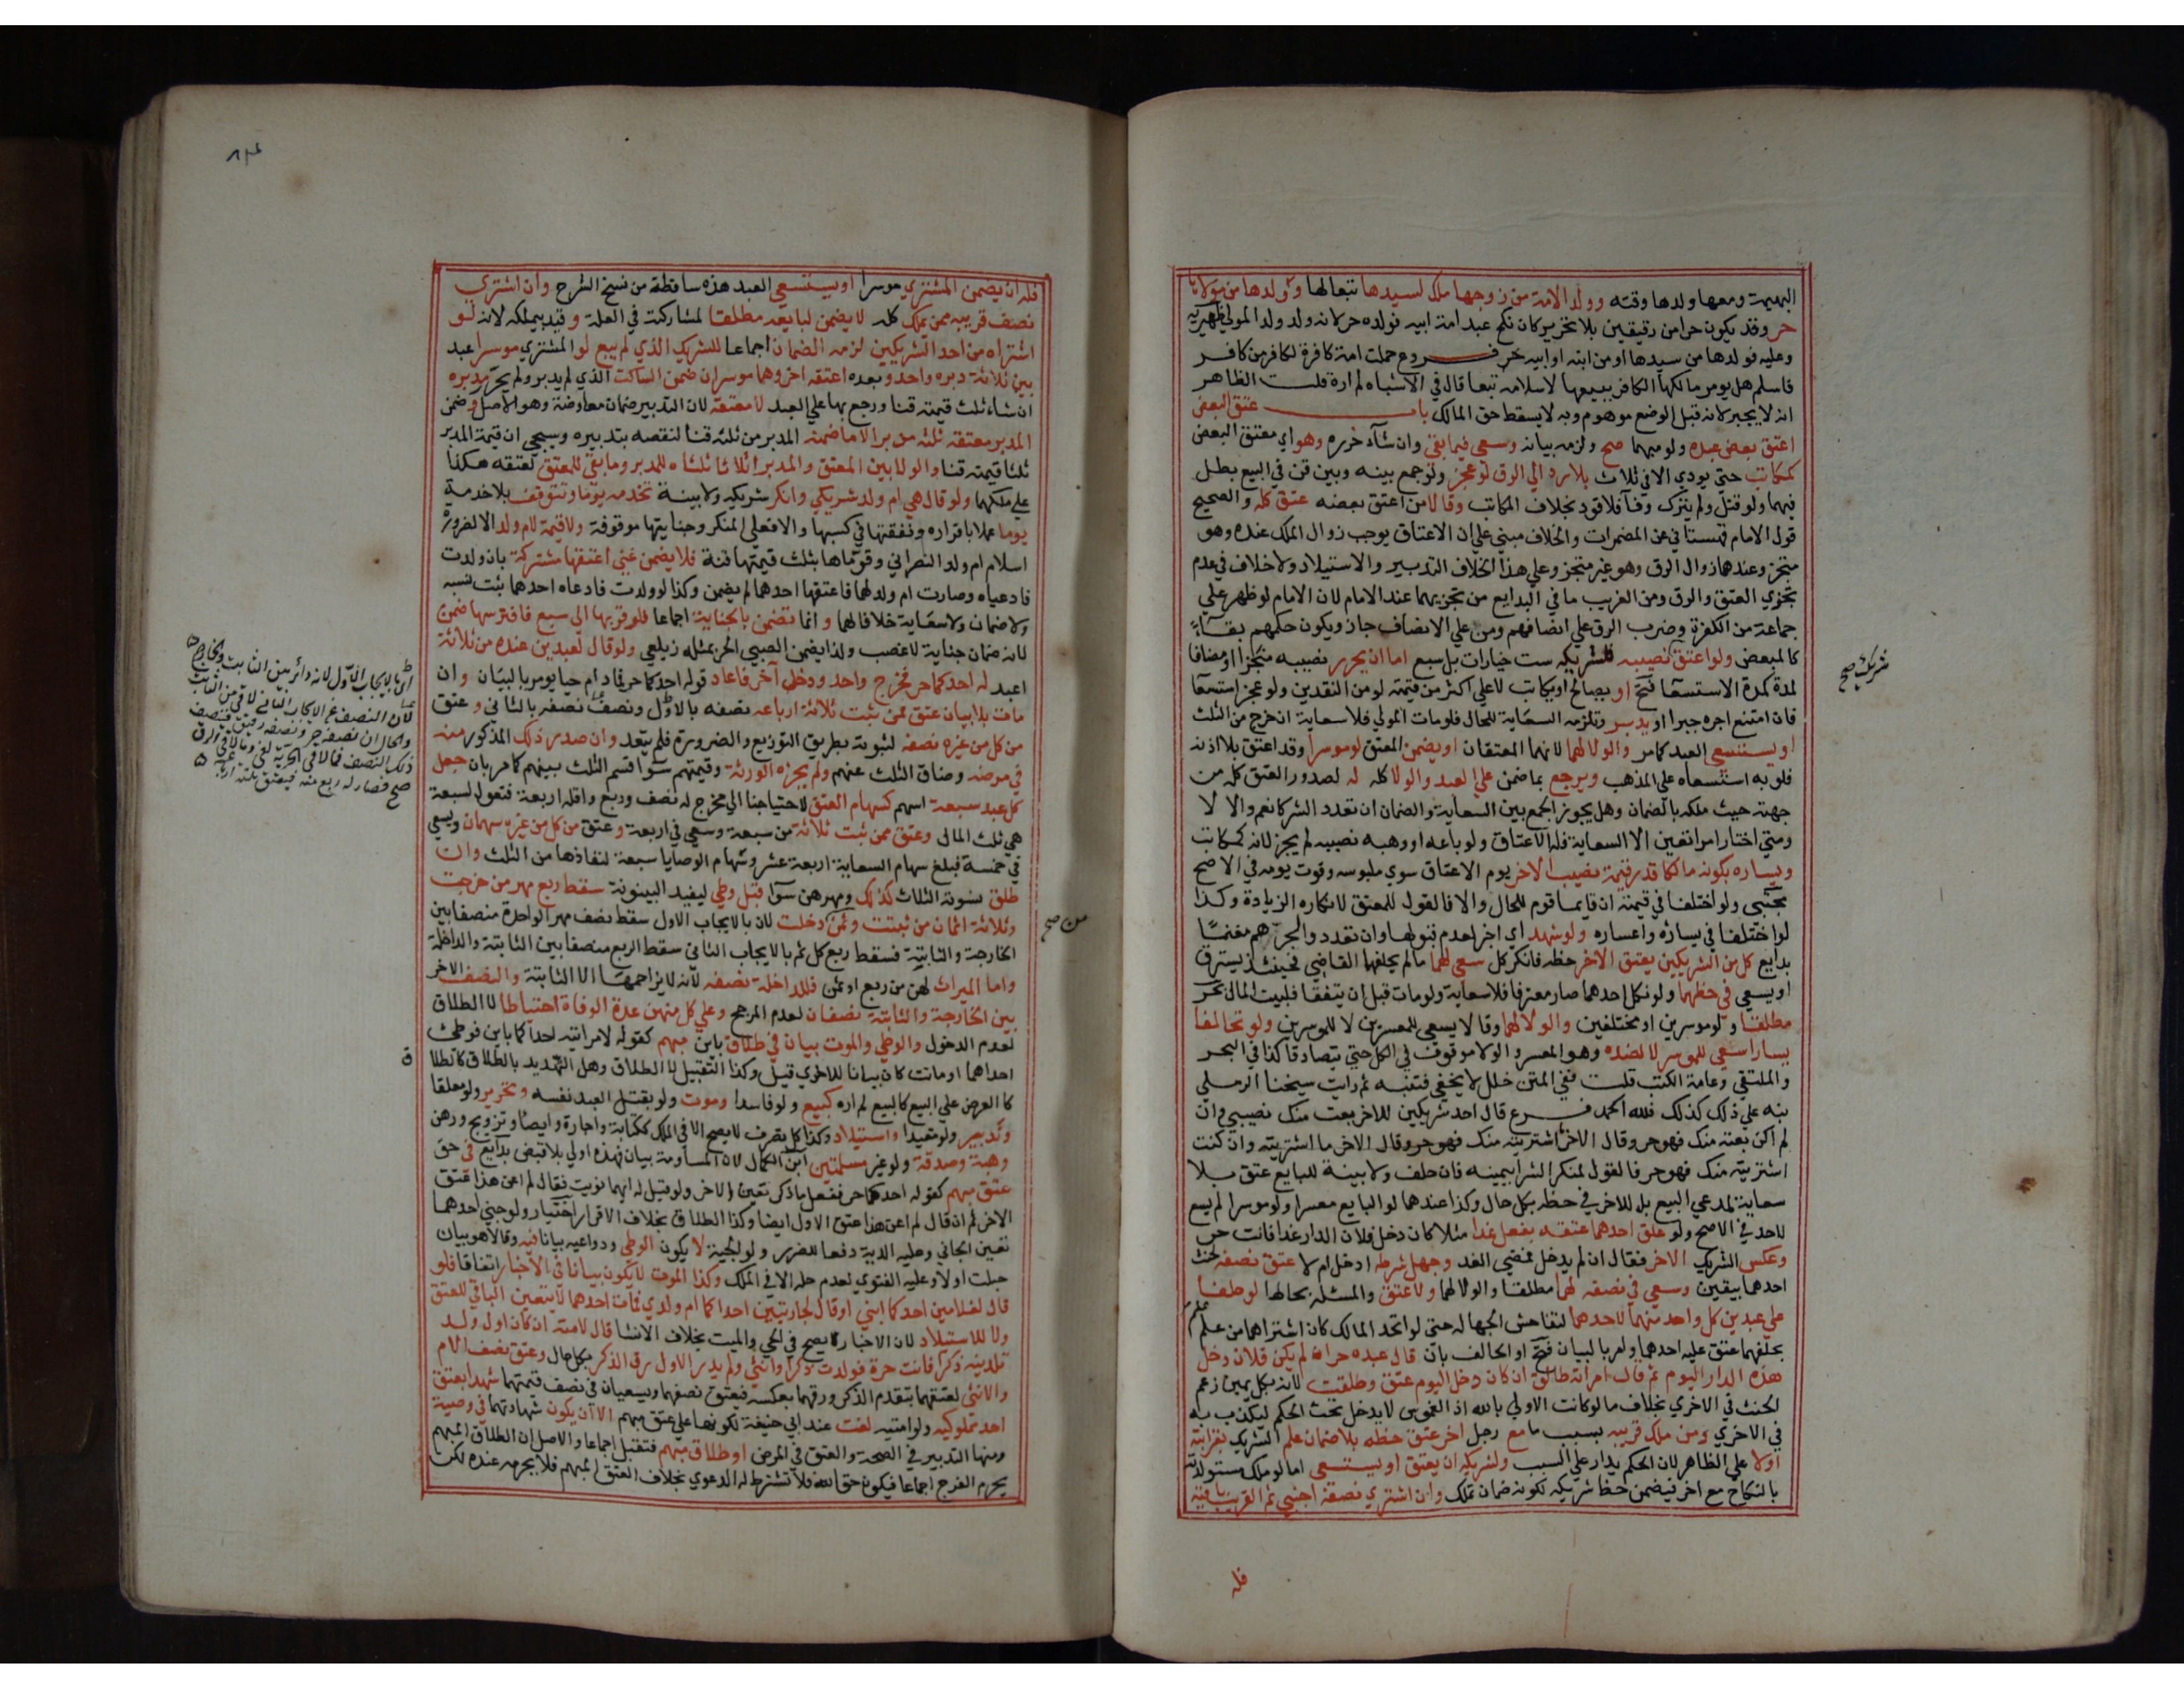 البهيمة ومعها ولدها وقته وولد الامة من زوجها ملك لسيدها تبعا لها وولدها من مولاها
حر وقد يكون حرا من رقيقين بلا تحرير كان نكح عبد امة ابيه فولده حر لانه ولد ولد المولي ظهيريه
وعليه فولدها من سيدها او من ابنه او ابيه حر فروع حملت امة كافرة لكافر من كافر
فاسلم هل يومر مالكها الكافر ببيعها لاسلامه تبعا قال في الاشباه لم اره قلت الظاهر
انه لا يجبر لانه قبل الوضع موهوم وبه لا يسقط حق المالك باب عتق البعض
اعتق بعض عبده ولو مبهما صح ولزمه بيانه وسعي فيما بقي وان شآء حرره وهو اي معتق البعض
كمكاتب حتي يودي الا في ثلاث بلا رد الي الرق لو عجز ولو جمع بينه وبين قن في البيع بطل
فيهما ولو قتل ولم يترك وفآ فلا قود بخلاف المكاتب وقالا من اعتق بعضه عتق كله والصحيح
قول الامام قهستاني عن المضمرات والخلاف مبني علي ان الاعتاق يوجب زوال الملك عنده وهو
متجز وعندهما زوال الرق وهو غير متجز وعلي هذا الخلاف التدبير والاستيلاد ولا خلاف في عدم
تجزي العتق والرق ومن الغريب ما في البدايع من تجزيهما عند الامام لان الامام لو ظهر علي
جماعة من الكفرة وضرب الرق علي انصافهم ومن علي الانصاف جاز ويكون حكمهم بقآء
كالمبعض ولو اعتق نصيبه فلشريكه ست خيارات بل سبع اما ان يحرر نصيبه منجزا او مضافا
لمدة كمدة الاستسعا فتح او يصالح او يكاتب لا علي اكثر من قيمته لو من النقدين ولو عجز استسعا
فان امتنع اجره جبرا او يدبر وتلزمه السعاية للحال فلو مات المولي فلا سعاية ان خرج من الثلث
او يستسعي العبد كما مر والولا لهما لانهما المعتقان او يضمن المعتق لو موسرا وقد اعتق بلا اذنه
فلو به استسعاه علي المذهب ويرجع بما ضمن علي العبد والولا كله له لصدور العتق كله من
جهته حيث ملكه بالضمان وهل يجوز الجمع بين السعاية والضمان ان تعدد الشركا نعم والا لا
ومتي اختار امرا تعين الا السعاية فله الاعتاق ولو باعه او وهبه نصيبه لم يجز لانه كمكاتب
ويساره بكونه مالكا قدر قيمة نصيب الاخر يوم الاعتاق سوي ملبوسه وقوت يومه في الاصح
مجتبي ولو اختلفا في قيمته ان قايما قوم للحال والا فالقول للمعتق لانكاره الزيادة وكذا
لو اختلفا في يساره واعساره ولو شهد اي اخبر لعدم قبولها وان تعدد والجرهم مغنما
بدايع كل من الشريكين بعتق الاخر حظه فانكر كل سعي لهما ما لم يحلفهما القاضي فحينئذ يسترق
او يسعي في حظهما ولو نكل احدهما صار معترفا فلا سعاية ولو مات قبل ان يتفقا فلبيت المال بحر
مطلقا ولو موسرين او مختلفين والولا لهما وقالا يسعي للمعسرين لا للموسرين ولو تخالفا
يسارا سعي للموسر لا لضده وهو المعسر والولا موقوف في الكل حتي يتصادقا كذا في البحر
والملتقي وعامة الكتب قلت ففي المتن خلل لا يخفي فتنبه ثم رايت شيخنا الرملي
نبه علي ذلك كذلك فلله الحمد فرع قال احد شريكين للاخر بعت منك نصيبي وان
لم اكن بعته منك فهو حر وقال الاخر ما اشتريته منك فهو حر وقال الاخر ما اشتريته وان كنت
اشتريته منك فهو حر فالقول لمنكر الشرا بيمينه فان حلف ولا بينة للبايع عتق بلا
سعاية لمدعي البيع بل للاخر في حظه بكل حال وكذا عندهما لو البايع معسرا ولو موسرا لم يسع
لاحد في الاصح ولو علق احدهما عتقه بفعل غدا مثلا كان دخل فلان الدار غدا فانت حر
وعكس الشريك الاخر فقال ان لم يدخل فمضي الغد وجهل شرطه ادخل ام لا عتق نصفه لحنث
احدهما بيقين وسعي في نصفه لهما مطلقا والولا لهما ولا عتق والمسئلة بحالها لو حلفا
علي عبدين كل واحد منهما لاحدهما لتفاحش الجهالة حتي لو اتحد المالك كان اشتراهما من علم
بحلفهما عتق عليه احدهما وامر بالبيان فتح او الحالف بان قال عبده حر ان لم يكن فلان دخل
هذه الدار اليوم ثم قال امراته طالق ان كان دخل اليوم عتق وطلقت لانه بكل يمين زعم
الحنث في الاخري بخلاف ما لو كانت الاولي بالله اذ الغموس لا يدخل تحت الحكم ليكذب به
في الاخري ومن ملك قريبه بسبب ما مع رجل اخر عتق حظه بلا ضمان علم الشريك بقرابته
اولا علي الظاهر لان الحكم يدار علي السبب ولشريكه ان يعتق او يستسعي اما لو ملك مستولدته
بالنكاح مع اخر فيضمن حظ شريكه لكونه ضمان تملك وان اشتري نصفه اجنبي ثم القريب باقيه
فله
شريك صح
فله ان يضمن المشتري موسرا او يستسعي العبد هذه ساقطة من نسخ الشرح وان اشتري
نصف قريبه ممن يملك كله لا يضمن لبايعه مطلقا لمشاركته في العلة وقيد بيملكه لانه لو
اشتراه من احد الشريكين لزمه الضمان اجماعا للشريك الذي لم يبع لو المشتري موسرا عبد
بين ثلاثة دبره واحد وبعده اعتقه اخر وهما موسران ضمن الساكت الذي لم يدبر ولم يحرر مدبره
ان شاء ثلث قيمته قنا ورجع بها علي العبد لا معتقه لان التدبير ضمان معاوضة وهو الاصل وضمن
المدبر معتقه ثلثه مدبرا لا ما ضمنه المدبر من ثلثه قنا لنقصه بتدبيره وسيجي ان قيمة المدبر
ثلثا قيمته قنا والولا بين المعتق والمدبر اثلاثا ثلثاه للمدبر وما بقي للمعتق لعتقه هكذا
علي ملكهما ولو قال هي ام ولد شريكي وانكر شريكه ولا بينة تخدمه يوما وتتوقف بلا خدمة
يوما عملا باقراره ونفقتها في كسبها والا فعلي المنكر وجنايتها موقوفة ولا قيمة لام ولد الا لضرورة
اسلام ام ولد النصراني وقوماها بثلث قيمتها قنة فلا يضمن غني اعتقها مشتركة بان ولدت
فادعياه وصارت ام ولد لهما فاعتقها احدهما لم يضمن وكذا لو ولدت فادعاه احدهما ثبت نسبه
ولا ضمان ولا سعاية خلافا لهما وانما تضمن بالجناية اجماعا فلو قربها الي سبع فافترسها ضمن
لانه ضمان جناية لا غصب ولذا يضمن الصبي الحر بمثله زيلعي ولو قال لعبدين عنده من ثلاثة
اعبد له احدكما حر فخرج واحد ودخل آخر فاعاد قوله احدكما حر فادام حيا يومر بالبيان وان
مات بلا بيان عتق ممن ثبت ثلاثة ارباعه نصفه بالاول ونصف نصفه بالثاني وعتق
من كل من غيره نصفه لثبوته بطريق التوزيع والضرورة فلم يتعد وان صدر ذلك المذكور منه
في مرضه وضاق الثلث عنهم ولم يجزه الورثة وقيمتهم سوا قسم الثلث بينهم كما مر بان جعل
كل عبد سبعة اسهم كسهام العتق لاحتياجنا الي مخرج له نصف وربع واقله اربعة فتعول لسبعة
هي ثلث المال وعتق ممن ثبت ثلاثة من سبعة وسعي في اربعة وعتق من كل من غيره سهمان ويسعي
في خمسة فبلغ سهام السعاية اربعة عشر وسهام الوصايا سبعة لنفاذها من الثلث وان
طلق نسوته الثلاث كذلك ومهرهن سوا قبل وطي ليفيد البينونة سقط ربع مهر من خرجت
وثلاثة اثمان من ثبتت وثمن دخلت لان بالايجاب الاول سقط نصف مهر الواحدة منصفا بين
الخارجة والثابتة فسقط ربع كل ثم بالايجاب الثاني سقط الربع منصفا بين الثابتة والداخلة
واما الميراث لهن من ربع او ثمن فللداخلة نصفه لانه لا يزاحمها الا الثابتة والنصف الاخر
بين الخارجة والثابتة نصفان لعدم المرجح وعلي كل منهن عدة الوفاة احتياطا لا الطلاق
لعدم الدخول والوطي والموت بيان في طلاق باين مبهم كقوله لامراتيه احداكما باين فوطئ
احداهما او ماتت كان بيانا للاخري قيل وكذا التقبيل لا الطلاق وهل التهديد بالطلاق كالطلا
كا العرض علي البيع كالبيع لم اره كبيع ولو فاسدا وموت ولو بقتل العبد نفسه وتحرير ولو معلقا
وتدبير ولو مقيدا واستيلاد وكذا كل تصرف لا يصح الا في الملك ككتابة واجارة وايصا وتزويج ورهن
وهبة وصدقة ولو غير مسلمتين ابن الكمال لان المساومة بيان فهذه اولي بلا قبض بدايع في حق
عتق مبهم كقوله احدكما حر ففعل ما ذكر تعين الاخر ولو قيل له ايهما نويت فقال لم اعن هذا عتق
الاخر ثم ان قال لم اعن هذا عتق الاول ايضا وكذا الطلاق بخلاف الاقرار اختيار ولو جني احدهما
تعين الجاني وعليه الدية دفعا للضرر ولولجية لا يكون الوطي ودواعيه بيانا فيه وقالا هو بيان
حبلت اولا وعليه الفتوي لعدم حله الا في الملك وكذا الموت لا يكون بيانا في الاخبار اتفاقا فلو
قال لغلامين احدكما ابني او قال لجاريتين احداكما ام ولدي فمات احدهما لا يتعين الباقي للعتق
ولا للاستيلاد لان الاخبار يصح في الحي والميت بخلاف الانشا قال لامته ان كان اول ولد
تلدينه ذكرا فانت حرة فولدت ذكرا وانثي ولم يدر الاول رق الذكر بكل حال وعتق نصف الام
والانثي لعتقهما بتقدم الذكر ورقهما بعكسه فيعتق نصفهما ويسعيان في نصف قيمتهما شهدا بعتق
احد مملوكيه ولو امتيه لغت عند ابي حنيفة لكونها علي عتق مبهم الا ان يكون شهادتهما في وصية
ومنها التدبير في الصحة والعتق في المرض او طلاق مبهم فتقبل اجماعا والاصل ان الطلاق المبهم
يحرم الفرج اجماعا فيكون حق الله فلا تشترط له الدعوي بخلاف العتق المبهم فلا يحرمه عنده لكن
من صح
ق
بالايجاب الاول لانه دائر بين الثابت والخارج
لان النصف
والحال ان نصفه حر ونصفه رقيق فتنصف
ذلك النصف فما لاقي الحرية لغي وما لاقي الرق
صح فصار له ربع منه فيعتق ثلثة ارباع